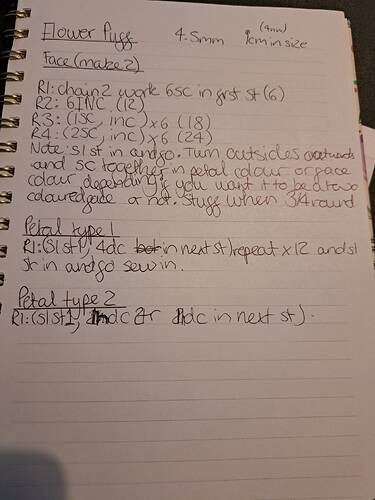 Flower Puff 4.5mm (4mm) 1cm in size
Face (make 2)
R1: chain 2 work 6SC in first st (6)
R2: 6INC (12)
R3: (1SC, inc) x 6 (18)
R4: (2SC, inc) x 6 (24)
Note: sl st in and go. Turn outsides outwards
and sc together in petal colour or face
colour depending if you want it to be a two
coloured face or not. Stuff when 3/4 round
Petal type 1
R1: (sl st 1, 4dc in next st) repeat x 12 and sl
st in and go sew in.
Petal type 2
R1: (sl st 1, dc 2tr dc in next st).